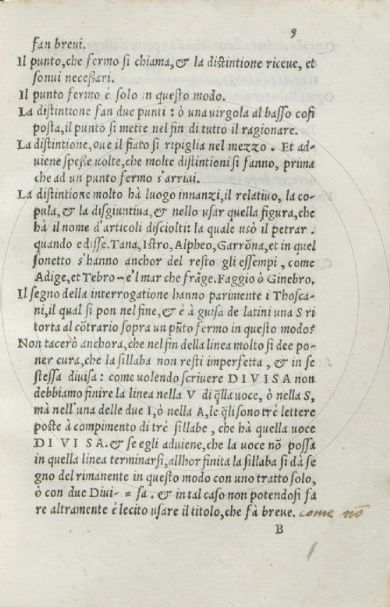 9
fan breui.
Il punto, che fermo si chiama, & la distintione riceue, et
sonui necessari.
Il punto fermo è solo in questo modo.
La distintione fan due punti : ò una uirgola al basso cosi
posta, il punto si mette nel fin di tutto il ragionare.
La distintione, oue il fiato si ripiglia nel mezzo . Et ad-
uiene spesse uolte, che molte distintioni si fanno, prima
che ad un punto fermo s'arriui.
La distintione molto hà luogo innanzi, il relatiuo, la co-
pula, & la disgiuntiua, & nello usar quella figura, che
hà il nome d'articoli disciolti: la quale usò il petrar.
quando e disse. Tana, Istro, Alpheo, Garrōna, et in quel
sonetto s'hanno anchor del resto gli essempi, come
Adige, et Tebro — e'l mar che frāge. Faggio ò Ginebro.
Il segno della interrogatione hanno parimente i Thosca-
ni, il qual si pon nel fine, & è à guisa de latini una S ri
torta al cōtrario sopra un pūto fermo in questo modo?
Non tacerò anchora, che nel fin della linea molto si dee po-
ner cura, che la sillaba non resti imperfetta , & in se
stessa diuisa : come uolendo scriuere DIVISA non
debbiamo finire la linea nella V di q̄lla uoce, ò nella S,
mà nell'una delle due I, ò nella A, le q̄li sono trè lettere
poste à compimento di trè sillabe , che hà quella uoce
DIVISA. & se egli aduiene, che la uoce nō possa
in quella linea terminarsi, allhor finita la sillaba si dà se
gno del rimanente in questo modo con uno tratto solo,
ò con due Diui- = sa . & in tal caso non potendosi fa
re altramente è lecito usare il titolo, che fà breue. come nō
B